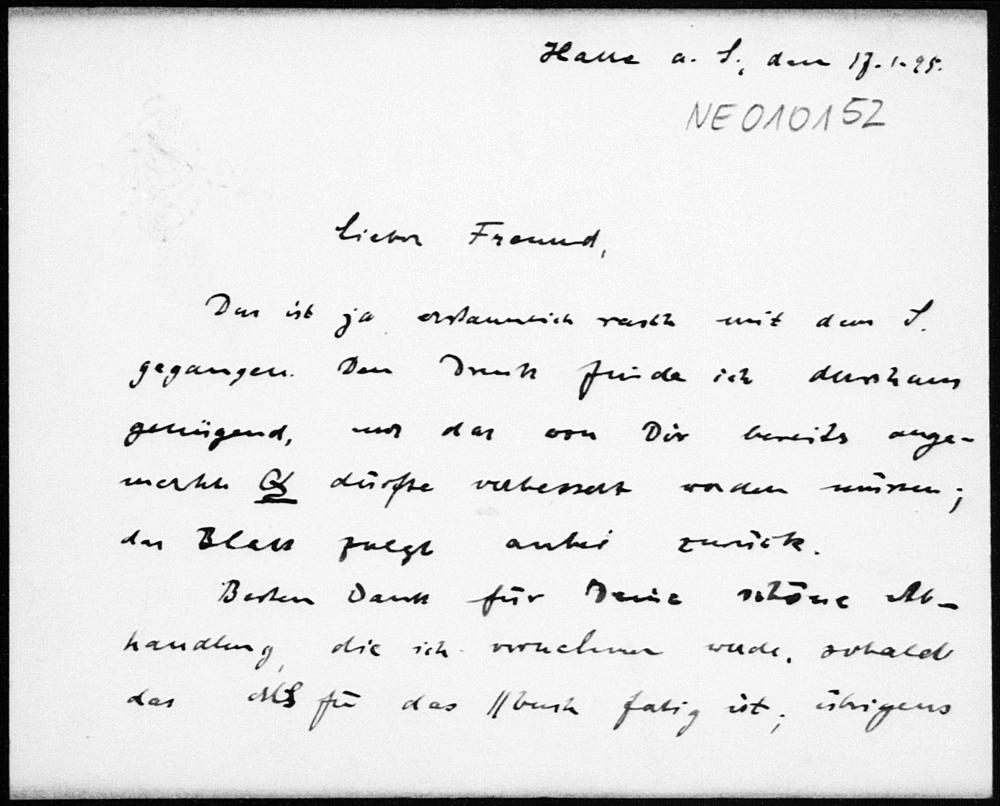 Halle a. S., den 17.1.95.
NE010152
Lieber Freund,
Das ist ja erstaunlich rasch mit dem S.
gegangen. Den Druck finde ich durchaus
genügend, nur das von Dir bereits ange-
merkte dürfte verbessert werden müssen;
das Blatt folgt anbei zurück.
Besten Dank für Deine schöne Ab-
handlung, die ich vornehmen werde, sobald
das MS für das buch fertig ist; übrigens